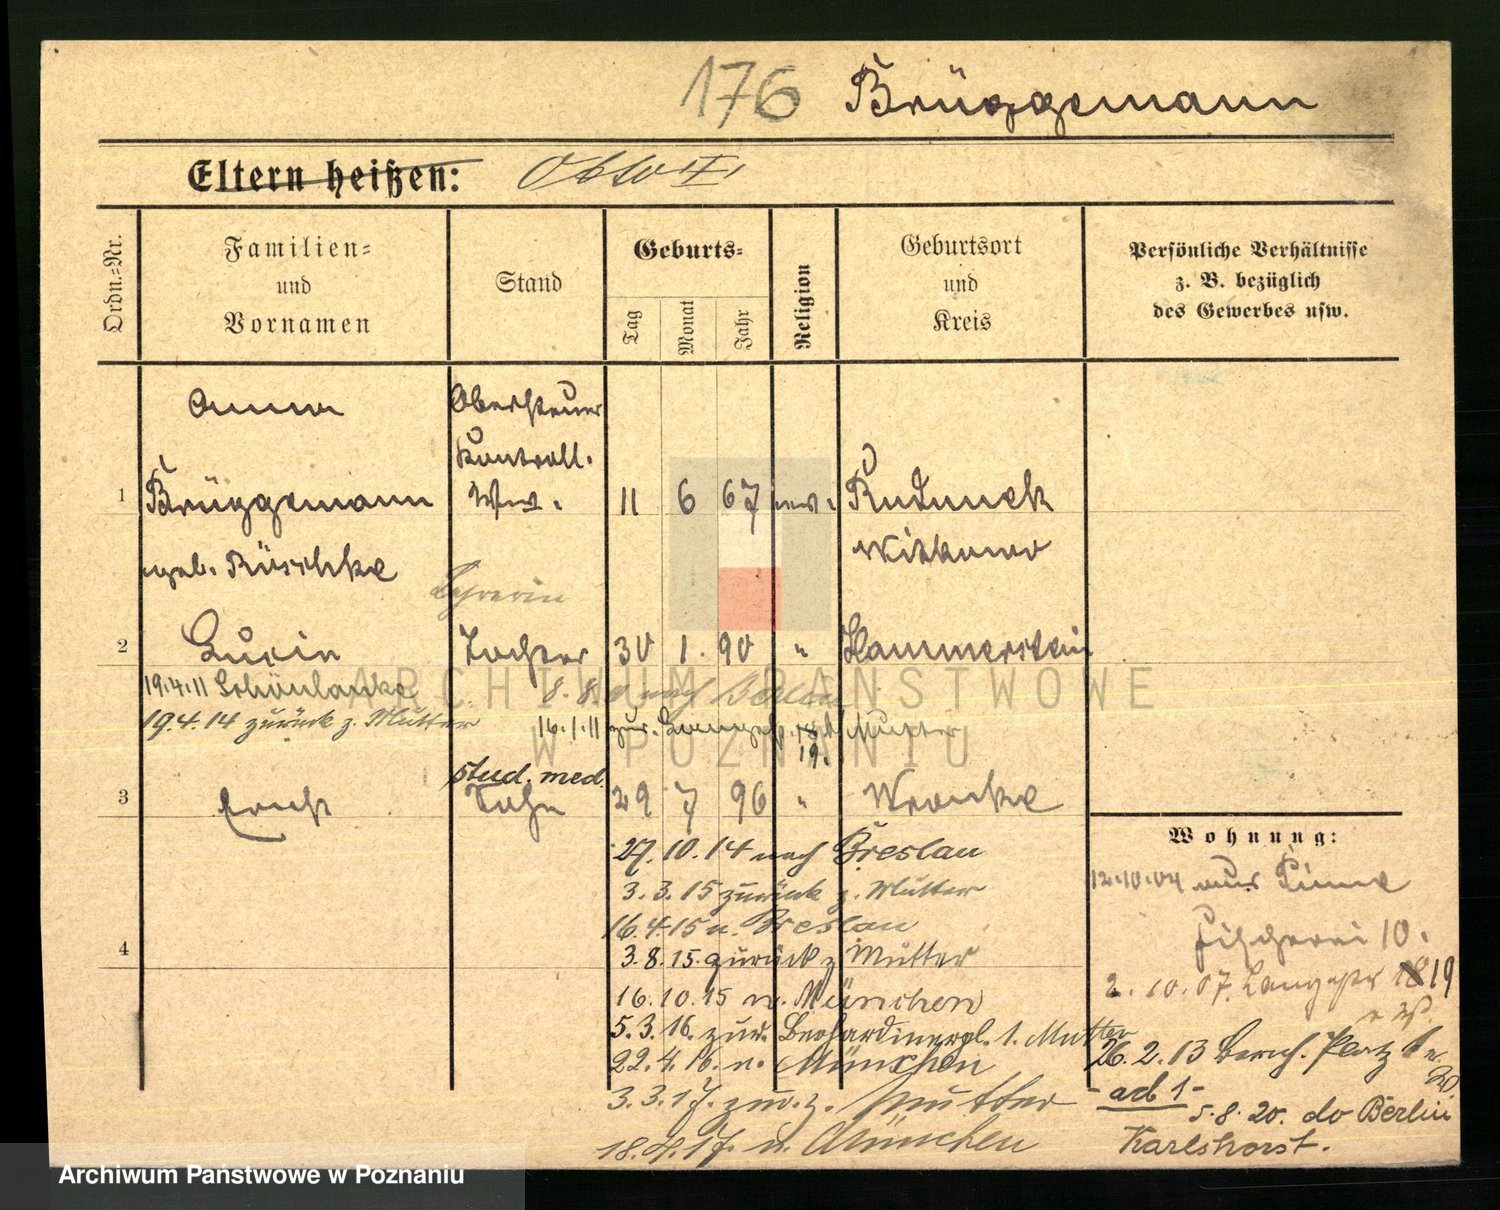 176 Brüggemann
Eltern heißen: Otto II
Ordn.-Nr.
Familien-
und
Vornamen
Stand
Geburts-
Tag
Monat
Jahr
Religion
Geburtsort
und
Kreis
Persönliche Verhältnisse
z. B. bezüglich
des Gewerbes usw.
Anna Obersteuer
Kontroll.
1 Brüggemann Ww. 11 6 67 ev. Rudunek
geb. Röschke Witkowo
Lehrerin
2 Lucie Tochter 30 1. 90 " Hammerstein
19.4.11 Schönlanke 8.8. nach Berlin
19.4.14 zurück z. Mutter 16.1.11 zur. Mutter
19.
stud. med.
3 Erich Sohn 29 7 96 " Wronke
27.10.14 nach Breslau
3.3.15 zurück z. Mutter
16.4.15 n. Breslau
4 3.8.15 zurück z Mutter
16.10.15 n. München
5.3.16. zur. Berhardinerpl. 1. Mutter
22.4.16. n. München
3.3.17. zur. z. Mutter
18.4.17 n. München
Wohnung:
12.10.04 aus Pinne
Fischerei 10.
2.10.07. Langestr 19
26.2.13 Bernh. Platz 1
- ad 1 -
5.8.20. do Berlin
Karlshorst.
ARCHIWUM PAŃSTWOWE
W POZNANIU
Archiwum Państwowe w Poznaniu